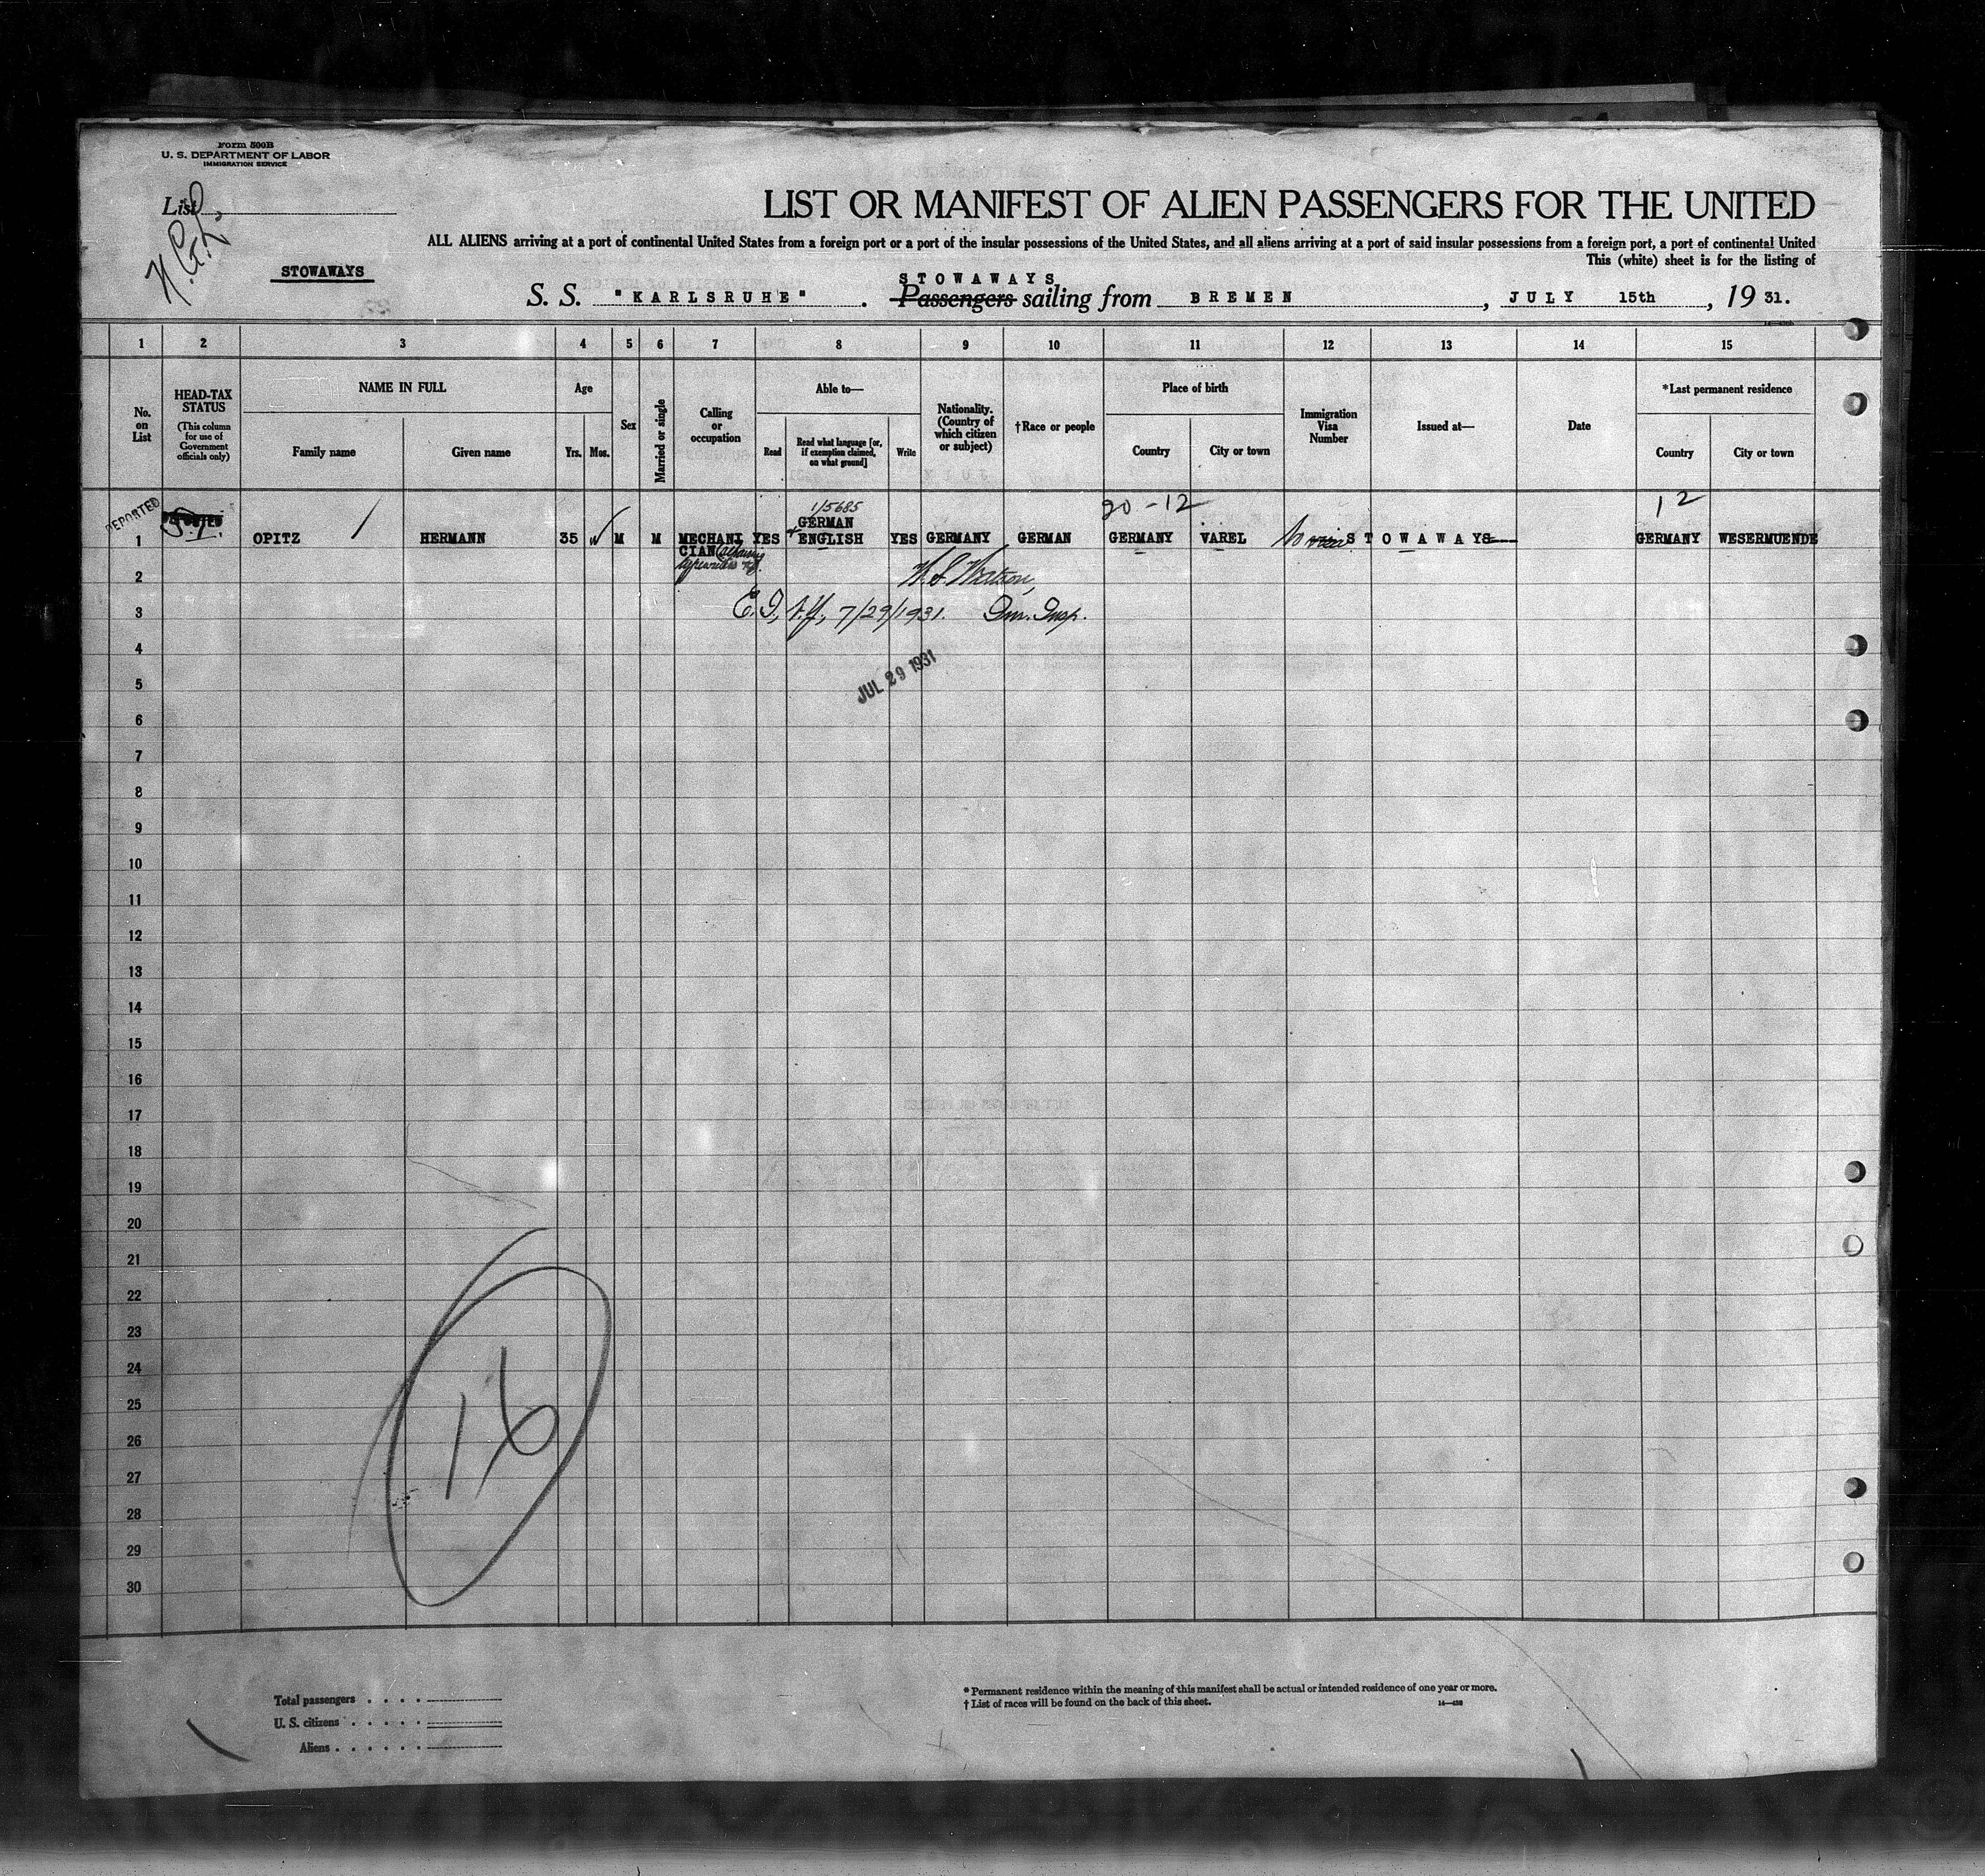 Form 500B
U. S. DEPARTMENT OF LABOR
IMMIGRATION SERVICE
List
N.G.L.
LIST OR MANIFEST OF ALIEN PASSENGERS FOR THE UNITED
ALL ALIENS arriving at a port of continental United States from a foreign port or a port of the insular possessions of the United States, and all aliens arriving at a port of said insular possessions from a foreign port, a port of continental United
This (white) sheet is for the listing of
STOWAWAYS
STOWAWAYS
S. S. "KARLSRUHE". Passengers sailing from BREMEN, JULY 15th, 19 31.
1 2 3 4 5 6 7 8 9 10 11 12 13 14 15
No. on List
HEAD-TAX STATUS
(This column for use of Government officials only)
NAME IN FULL
Family name
Given name
Age
Yrs.
Mos.
Sex
Married or single
Calling or occupation
Able to—
Read
Read what language [or, if exemption claimed, on what ground]
Write
Nationality. (Country of which citizen or subject)
†Race or people
Place of birth
Country
City or town
Immigration Visa Number
Issued at—
Date
*Last permanent residence
Country
City or town
1/5685
20-12
12
GERMAN
1 OPITZ HERMANN 35 M M MECHANI YES ENGLISH YES GERMANY GERMAN GERMANY VAREL No visa STOWAWAYS GERMANY WESERMUENDE
CIAN
typewriters
2
3 E.I., N.Y., 7/29/1931. Im. Insp.
4
JUL 29 1931
5
6
7
8
9
10
11
12
13
14
15
16
17
18
19
20
21
22
23
24
25
26
27
28
29
30
16
Total passengers
U. S. citizens
Aliens
* Permanent residence within the meaning of this manifest shall be actual or intended residence of one year or more.
† List of races will be found on the back of this sheet.